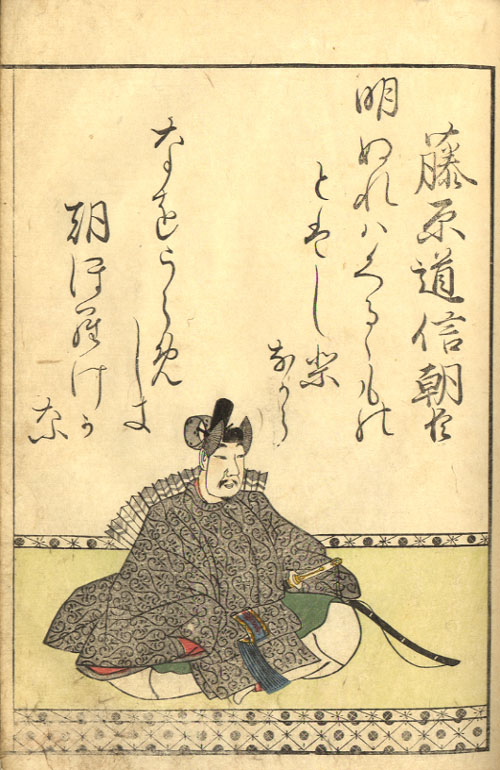 藤原道信朝臣
明ぬれハくるゝもの
とはしり
なから
なをうらめ
しき
朝ほらけか
な